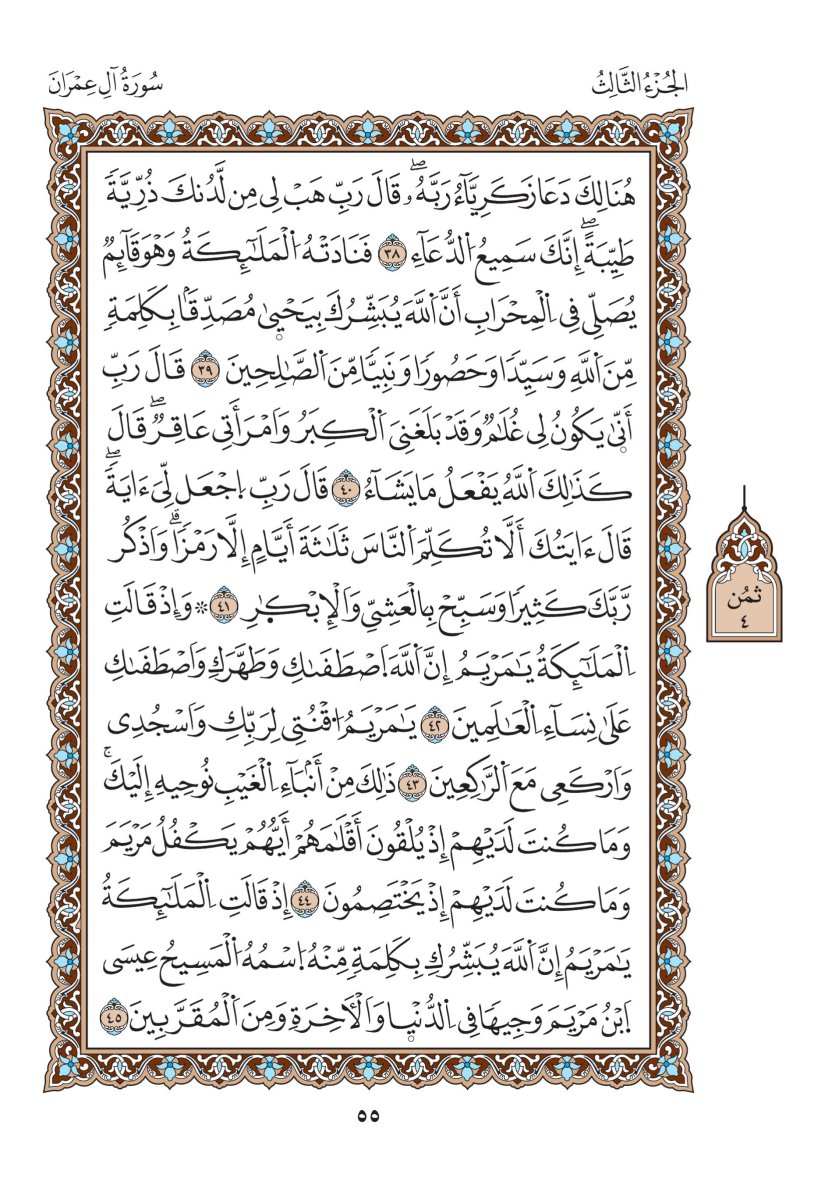 الجُزْءُ الثَّالِثُ
سُورَةُ آلِ عِمْرَانَ
هُنَالِكَ دَعَا زَكَرِيَّآءُ رَبَّهُۥۖ قَالَ رَبِّ هَبْ لِى مِن لَّدُنكَ ذُرِّيَّةٗ
طَيِّبَةًۖ إِنَّكَ سَمِيعُ اُ۬لدُّعَآءِ ٣٨ فَنَادَتْهُ اُ۬لْمَلَٰٓئِكَةُ وَهْوَ قَآئِمٞ
يُصَلِّى فِى اِ۬لْمِحْرَابِ أَنَّ اَ۬للَّهَ يُبَشِّرُكَ بِيَحْيۭىٰ مُصَدِّقَۢا بِكَلِمَةٖ
مِّنَ اَ۬للَّهِ وَسَيِّدٗا وَحَصُورٗا وَنَبِيّٗا مِّنَ اَ۬لصَّٰلِحِينَ ٣٩ قَالَ رَبِّ
أَنّۭىٰ يَكُونُ لِى غُلَٰمٞ وَقَدْ بَلَغَنِىَ اَ۬لْكِبَرُ وَامْرَأَتِى عَاقِرٞۖ قَالَ
كَذَٰلِكَ اَ۬للَّهُ يَفْعَلُ مَا يَشَآءُ ٤٠ قَالَ رَبِّ اِ۪جْعَل لِّىَ ءَايَةٗۖ
قَالَ ءَايَتُكَ أَلَّا تُكَلِّمَ اَ۬لنَّاسَ ثَلَٰثَةَ أَيَّامٍ إِلَّا رَمْزٗاۗ وَاذْكُر
رَّبَّكَ كَثِيرٗا وَسَبِّحْ بِالْعَشِىِّ وَالْإِبْكٰ۪رِ ٤١ ۞ وَإِذْ قَالَتِ
اِ۬لْمَلَٰٓئِكَةُ يَٰمَرْيَمُ إِنَّ اَ۬للَّهَ اَ۪صْطَفَىٰكِ وَطَهَّرَكِ وَاصْطَفَىٰكِ
عَلَىٰ نِسَآءِ اِ۬لْعَٰلَمِينَ ٤٢ يَٰمَرْيَمُ اُ۟قْنُتِى لِرَبِّكِ وَاسْجُدِى
وَارْكَعِى مَعَ اَ۬لرَّٰكِعِينَ ٤٣ ذَٰلِكَ مِنْ أَنۢبَآءِ اِ۬لْغَيْبِ نُوحِيهِ إِلَيْكَۚ
وَمَا كُنتَ لَدَيْهِمْ إِذْ يُلْقُونَ أَقْلَٰمَهُمْ أَيُّهُمْ يَكْفُلُ مَرْيَمَ
وَمَا كُنتَ لَدَيْهِمْ إِذْ يَخْتَصِمُونَ ٤٤ إِذْ قَالَتِ اِ۬لْمَلَٰٓئِكَةُ
يَٰمَرْيَمُ إِنَّ اَ۬للَّهَ يُبَشِّرُكِ بِكَلِمَةٖ مِّنْهُ اُ۪سْمُهُ اُ۬لْمَسِيحُ عِيسَى
اَ۪بْنُ مَرْيَمَ وَجِيهٗا فِى اِ۬لدُّنْيۭا وَالْأٓخِرَةِ وَمِنَ اَ۬لْمُقَرَّبِينَ ٤٥
ثُمُن
٤
٥٥